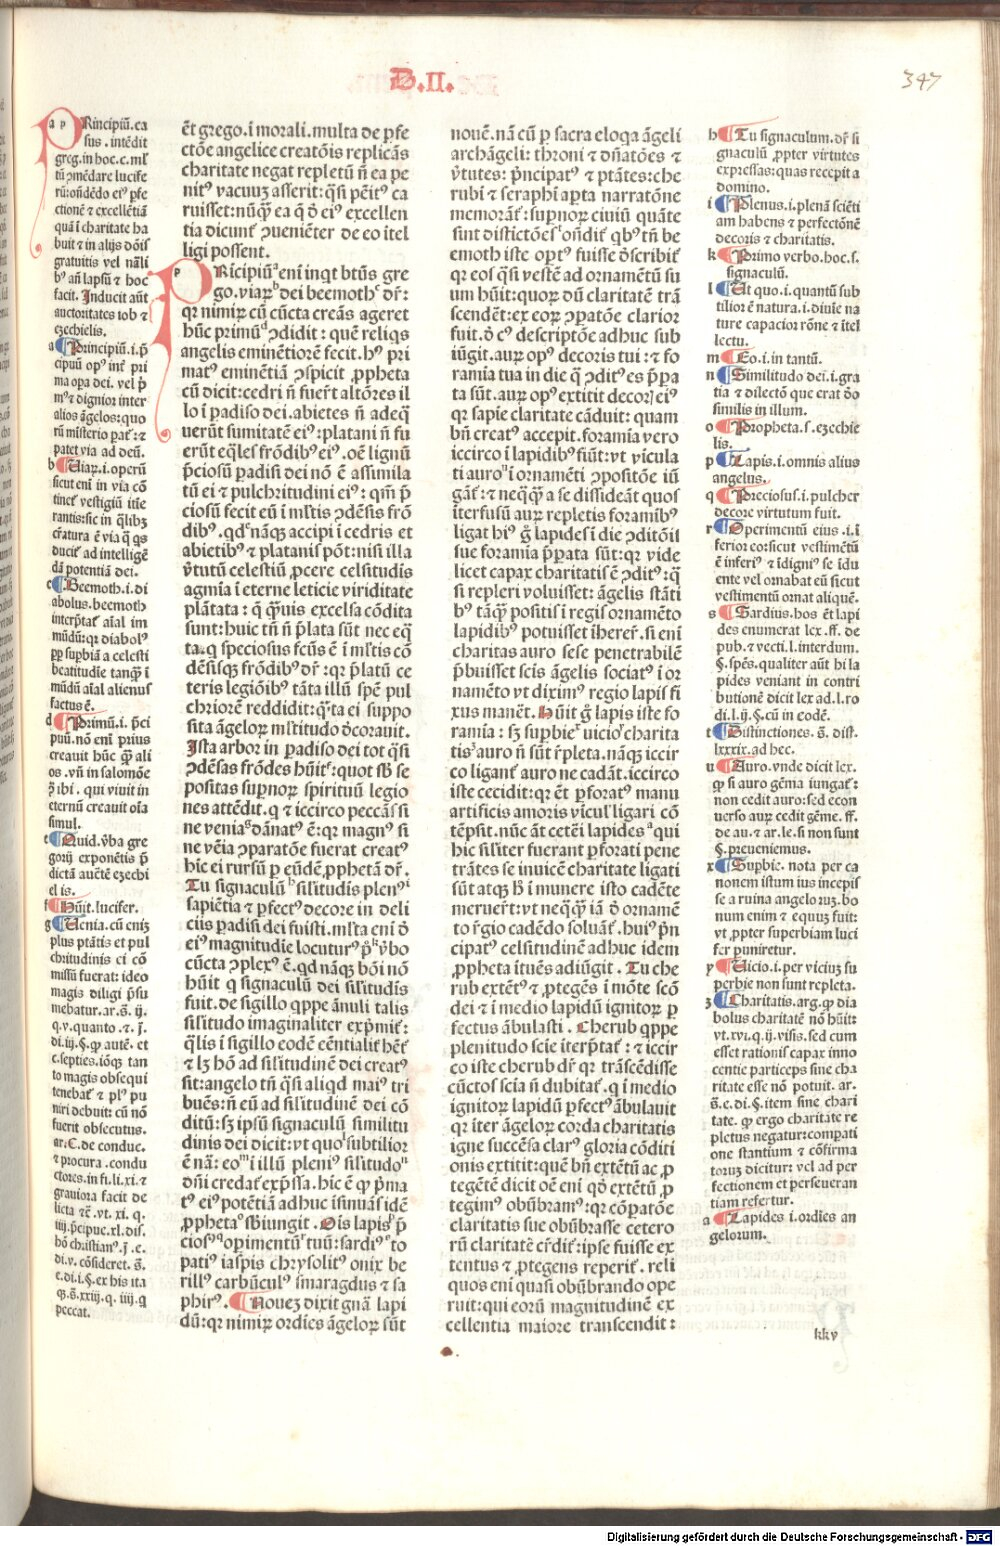 D.II.
347
PRincipiū.ca
sus. intēdit
greg.in hoc.c.ml'
tū ɔmēdare lucife
rū:oñdēdo ei⁹ ꝑfe
ctionē ⁊ excellētiā
quā ī charitate ha
buit ⁊ in alijs dōis
gratuitis vel nāli
b⁹ añ lapsū ⁊ hoc
facit. Inducit aūt
auctoritates iob ⁊
ezechielis.
a Principiū.i.p̄
cipuū op⁹ inť pri
ma opa dei. vel p̄
m⁹ ⁊ dignior inter
alios āgelos:quo
rū misterio pať:⁊
patet via ad deū.
b Uiaꝝ.i.operū
sicut eni in via cō
tineť vestigiū itīe
rantis:sic in q̄libꝫ
cr̄atura ē via q̄ q̄s
duciť ad intelligē
dā potentiā dei.
c Beemoth.i.di
abolus.beemoth
interp̄tať aīal im
mūdū:qꝛ diabol⁹
ꝓp̄ suꝑbiā a celesti
beatitudīe tanq̄ȝ ī
mūdū aīal alienus
factus ē.
d Primū.i. p̄ci
puū.nō eni prius
creauit hūc q̄ȝ ali
os .vñ in salomōe
p̄ ibi . qui viuit in
eternū creauit oīa
simul.
e Quid.v̄ba gre
gorij exponētis p̄
dictā auctē ezechi
el is.
f Hūit.lucifer.
g Uenia.cū eniȝ
plus ptātis et pul
chritudinis ei cō
missū fuerat: ideo
magis diligi p̄su
mebatur.ar.s̄. ij.
q.v.quanto .⁊. j̄.
di.iij.§.ꝙ autē. et
c.septies.iōqꝫ tan
to magis obsequi
tenebať ⁊ pl⁹ pu
niri debuit: cū nō
fuerit obsecutus.
ar.C.de conduc.
⁊ procura .condu
ctores.in fi.li.xi.⁊
grauiora facit de
licta ⁊c̄ .vt. xi. q.
iij.p̄cipue.xl.dis.
hō christian⁹.j̄ .e.
di.v. cōsideret. s̄.
e.di.i.§.ex his ita
qꝫ.s̄.xxij.q. iiij.q
peccat.
ēt grego.i morali.multa de ꝑfe
ctōe angelice creatōis replicās
charitate negat repletū ñ ea pe
nit⁹ vacuuȝ asserit:q̄si pēit⁹ ca
ruisset:nūq̄ȝ ea q̄ ō ei⁹ excellen
tia dicunť ɔueniēter de eo itel
ligi possent.
PRicipiū eni inqt btūs gre
go.viaꝝ dei beemoth dr̄:
qꝛ nimiꝝ cū cūcta creās ageret
hūc primū ɔdidit : quē reliqs
angelis eminētiorē fecit.h⁹ pri
mat⁹ eminētiā ɔspicit ꝓpheta
cū dicit:cedri ñ fuer̄t altōres il
lo i padiso dei.abietes ñ adeq̄
uerūt sumitatē ei⁹:platani ñ fu
erūt eq̄les frōdib⁹ ei⁹.oē lignū
p̄ciosū padisi dei nō ē assimila
tū ei ⁊ pulchritudini ei⁹: qm̄ p̄
ciosū fecit eū i ml'tis ɔdēsis frō
dib⁹ .qd nāqꝫ accipi i cedris et
abietib⁹ ⁊ platanis pōt:nisi illa
v̄tutū celestiū ꝓcere celsitudis
agmīa i eterne leticie viriditate
plātata : q̄ q̄uis excelsa cōdita
sunt:huic tñ ñ p̄lata sūt nec eq̄
ta.q speciosus fcūs ē i ml'tis cō
dēsisqꝫ frōdib⁹ dr̄ :qꝛ p̄latū ce
teris legiōib⁹ tāta illū spē pul
chriorē reddidit:q̄ta ei suppo
sita āgeloꝝ ml'titudo ōcorauit.
Ista arbor in padiso dei tot q̄si
ɔdēsas frōdes hūit:quot sƀ se
positas supnoꝝ spirituū legio
nes attēdit.q ⁊ iccirco peccās si
ne venia dānat⁹ ē:qꝛ magn⁹ si
ne vēia ɔparatōe fuerat creat⁹
hīc ei rursū p eūdē,ꝓphetā dr̄.
Tu signaculū sil'itudis plen⁹
sapiētia ⁊ ꝑfect⁹ decore in deli
ciis padisi dei fuisti.ml'ta eni ō
ei⁹ magnitudīe locutur⁹ p̄ v̄bo
cūcta ɔplex⁹ ē.qd nāqꝫ bōi nō
hūit q signaculū dei sil'itudis
fuit.de sigillo qppe ānuli talis
sil'itudo imaginaliter exp̄miť:
q̄lis i sigillo eodē cēntialiť hēť
⁊ lꝫ hō ad sil'itudinē dei creat⁹
sit:angelo tñ q̄si aliqd mai⁹ tri
buēs:ñ eū ad sil'itudinē dei cō
ditū:sꝫ ipsū signaculū similitu
dinis dei dicit:vt quo subtilior
ē nā: eo i illū pleni⁹ sil'itudo
dñi credať exp̄ssa.hic ē ꝙ p̄ma
t⁹ ei⁹ potētiā adhuc isinuās idē
ꝓpheta sƀiungit .Ois lapis p̄
cios⁹ opimentū tuū:sardi⁹ to
pati⁹ iaspis chrysolit⁹ onix be
rill⁹ carbūcul⁹ smaragdus ⁊ sa
phir⁹. Noueȝ dixit gn̄a lapi
dū:qꝛ nimiꝝ ordies āgeloꝝ sūt
nouē.nā cū ꝑ sacra eloqa āgeli
archāgeli: throni ⁊ dñatōes ⁊
v̄tutes: p̄ncipat⁹ ⁊ ptātes:che
rubi ⁊ seraphi apta narratōne
memorāť: supnoꝝ ciuiū quāte
sint distictōes oñdiť qb⁹ tñ be
emoth iste opt⁹ fuisse ōscribiť
qꝛ eos q̄si vestē ad ornamētū su
um hūit:quoꝝ dū claritatē trā
scendēt:ex eoꝝ ɔpatōe clarior
fuit.ō c⁹ descriptōe adhuc sub
iūgit.auꝝ op⁹ decoris tui : ⁊ fo
ramia tua in die q̄ ɔdit⁹ es p̄pa
ta sūt.auꝝ op⁹ extitit decorȝ ei⁹
qꝛ sapie claritate cāduit: quam
bñ creat⁹ accepit.foramia vero
iccirco i lapidib⁹ fiūt:vt vicula
ti auro i ornamēti ɔpositōe iū
gāť:⁊ neq̄q̄ȝ a se dissideāt quos
iterfusū auꝝ repletis foramib⁹
ligat hi⁹ ḡ lapides i die ɔditōis
sue foramia p̄pata sūt:qꝛ vide
licet capax charitatis ē ɔdit⁹:q̄
si repleri voluisset: āgelis stāti
b⁹ tāq̄ȝ positis i regis ornamēto
lapidib⁹ potuisset iherer̄.si eni
charitas auro sese penetrabilē
p̄buisset scis āgelis sociat⁹ i or
namēto vt dixim⁹ regio lapis fi
xus manēt. Hūit ḡ lapis iste fo
ramia : sꝫ suꝑbie uicio charita
tis auro ñ sūt r̄pleta.nāqꝫ iccir
co liganť auro ne cadāt.iccirco
iste cecidit:qꝛ ēt ꝑforat⁹ manu
artificis amoris vicul' ligari cō
tēpsit.nūc āt cetēi lapides qui
hic sil'iter fuerant ꝑforati pene
trātes se inuicē charitate ligati
sūt atqꝫ h̄ i munere isto cadēte
meruer̄t:vt neq̄q̄ȝ iā ō ornamē
to r̄gio cadēdo soluāť.hui⁹ p̄n
cipat⁹ celsitudinē adhuc idem
ꝓpheta ituēs adiūgit . Tu che
rub extēt⁹ ⁊ ꝓtegēs i mōte scō
dei ⁊ i medio lapidū ignitoꝝ ꝑ
fectus ābulasti . Cherub qppe
plenitudo scie iterp̄tať : ⁊ iccir
co iste cherub dr̄ qꝛ trāscēdisse
cūctos scia ñ dubitať.q i medio
ignitoꝝ lapidū ꝑfect⁹ ābulauit
qꝛ iter āgeloꝝ corda charitatis
igne succēsa clar⁹ gloria cōditi
onis extitit:quē bñ extētū ac ꝓ
tegētē dicit oē eni qō extētū ꝓ
tegim⁹ obūbram⁹:qꝛ cōpatōe
claritatis sue obūbrasse cetero
rū claritatē cr̄diť:ipse fuisse ex
tentus ⁊ ꝓtegens reperiť. reli
quos eni quasi obūbrando ope
ruit:qui eorū magnitudinē ex
cellentia maiore transcendit:
h Tu signaculum.dr̄ si
gnaculū ,ꝓpter virtutes
expressas:quas recepit a
domino.
i Plenus.i.plenā sciēti
am habens ⁊ perfectōnē
decoris ⁊ charitatis.
k Primo verbo.hoc.s.
signaculū.
l Ut quo.i.quantū sub
tilior ē natura.i.diuīe na
ture capacior rōne ⁊ itel
lectu.
m Eo.i.in tantū.
n Similitudo dei.i.gra
tia ⁊ dilectō que erat ōo
similis in illum.
o Propheta.s.ezechie
lis.
p Lapis.i.omnis alius
angelus.
q Preciosus.i.pulcher
decore virtutum fuit.
r Operimentū eius .i.i
ferior eo:sicut vestimētū
ē inferi⁹ ⁊ īdigni⁹ se īdu
ente vel ornabat eū sicut
vestimentū ornat aliquē.
s Sardius.hos ēt lapi
des enumerat lex .ff. de
pub.⁊ vecti.l.interdum.
§.spēs.qualiter aūt hi la
pides veniant in contri
butionē dicit lex ad.l.ro
di.l.ij.§.cū in eodē.
t Distinctiones. s̄. dist.
lxxxix.ad hec.
u Auro.vnde dicit lex.
ꝙ si auro gēma iungať:
non cedit auro:sed econ
uerso auꝝ cedit gēme. ff.
de au.⁊ ar.le.si non sunt
§.preueniemus.
x Supbie. nota per ca
nonem istum ius incepis
se a ruina angeloruȝ.bo
num enim ⁊ equuȝ fuit:
vt ,ꝓpter superbiam luci
fer puniretur.
y Uicio.i.per viciuȝ su
perbie non sunt repleta.
z Charitatis.arg.ꝙ dia
bolus charitatē nō hūit:
vt.xvi.q.ij.visis.sed cum
esset rationis capax inno
centie particeps sine cha
ritate esse nō potuit. ar.
s̄.e.di.§.item sine chari
tate. ꝙ ergo charitate re
pletus negatur:compati
one stantium ⁊ cōfirma
toruȝ dicitur: vel ad per
fectionem et perseueran
tiam refertur.
a Lapides i.ordies an
gelorum.
kkv
Digitalisierung gefördert durch die Deutsche Forschungsgemeinschaft - DFG